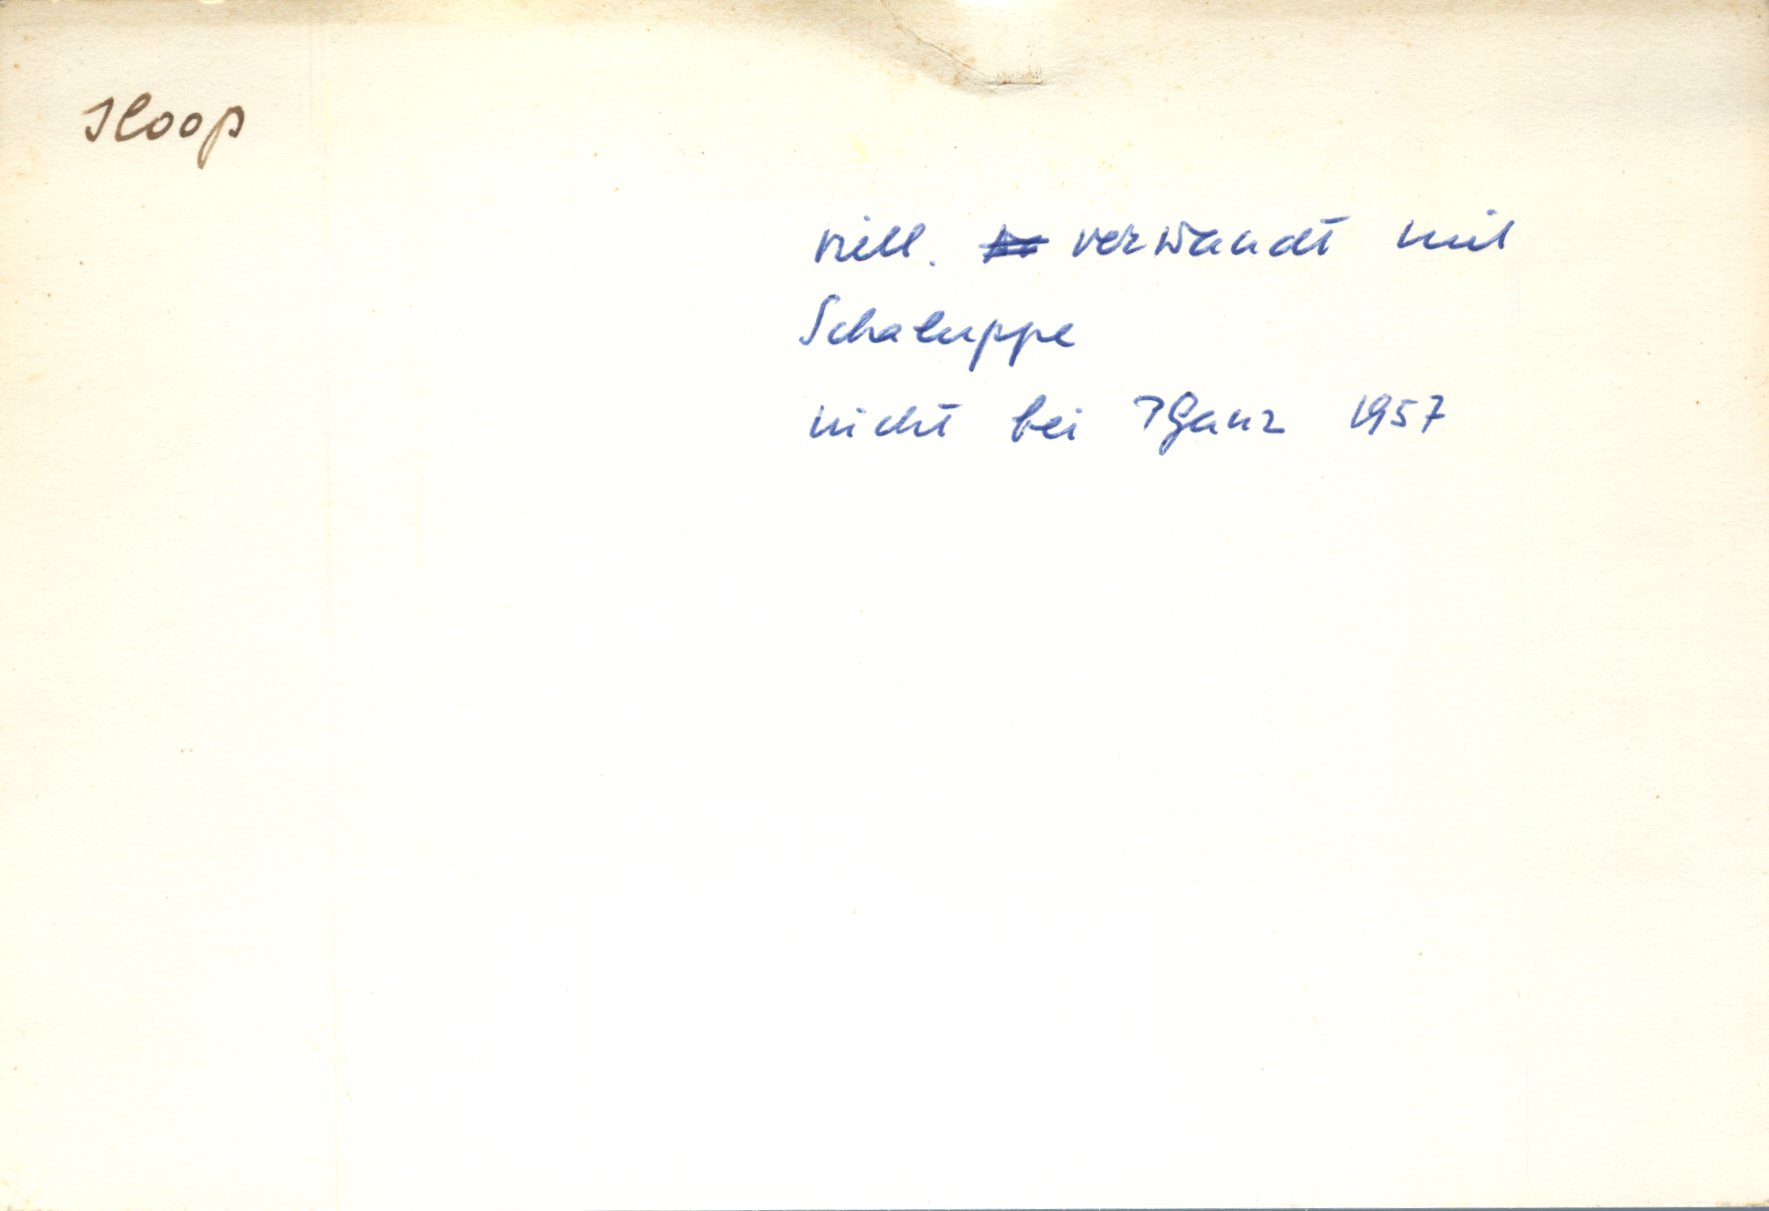 Sloop
viell. verwandt mit
Schaluppe
nicht bei PGanz 1957